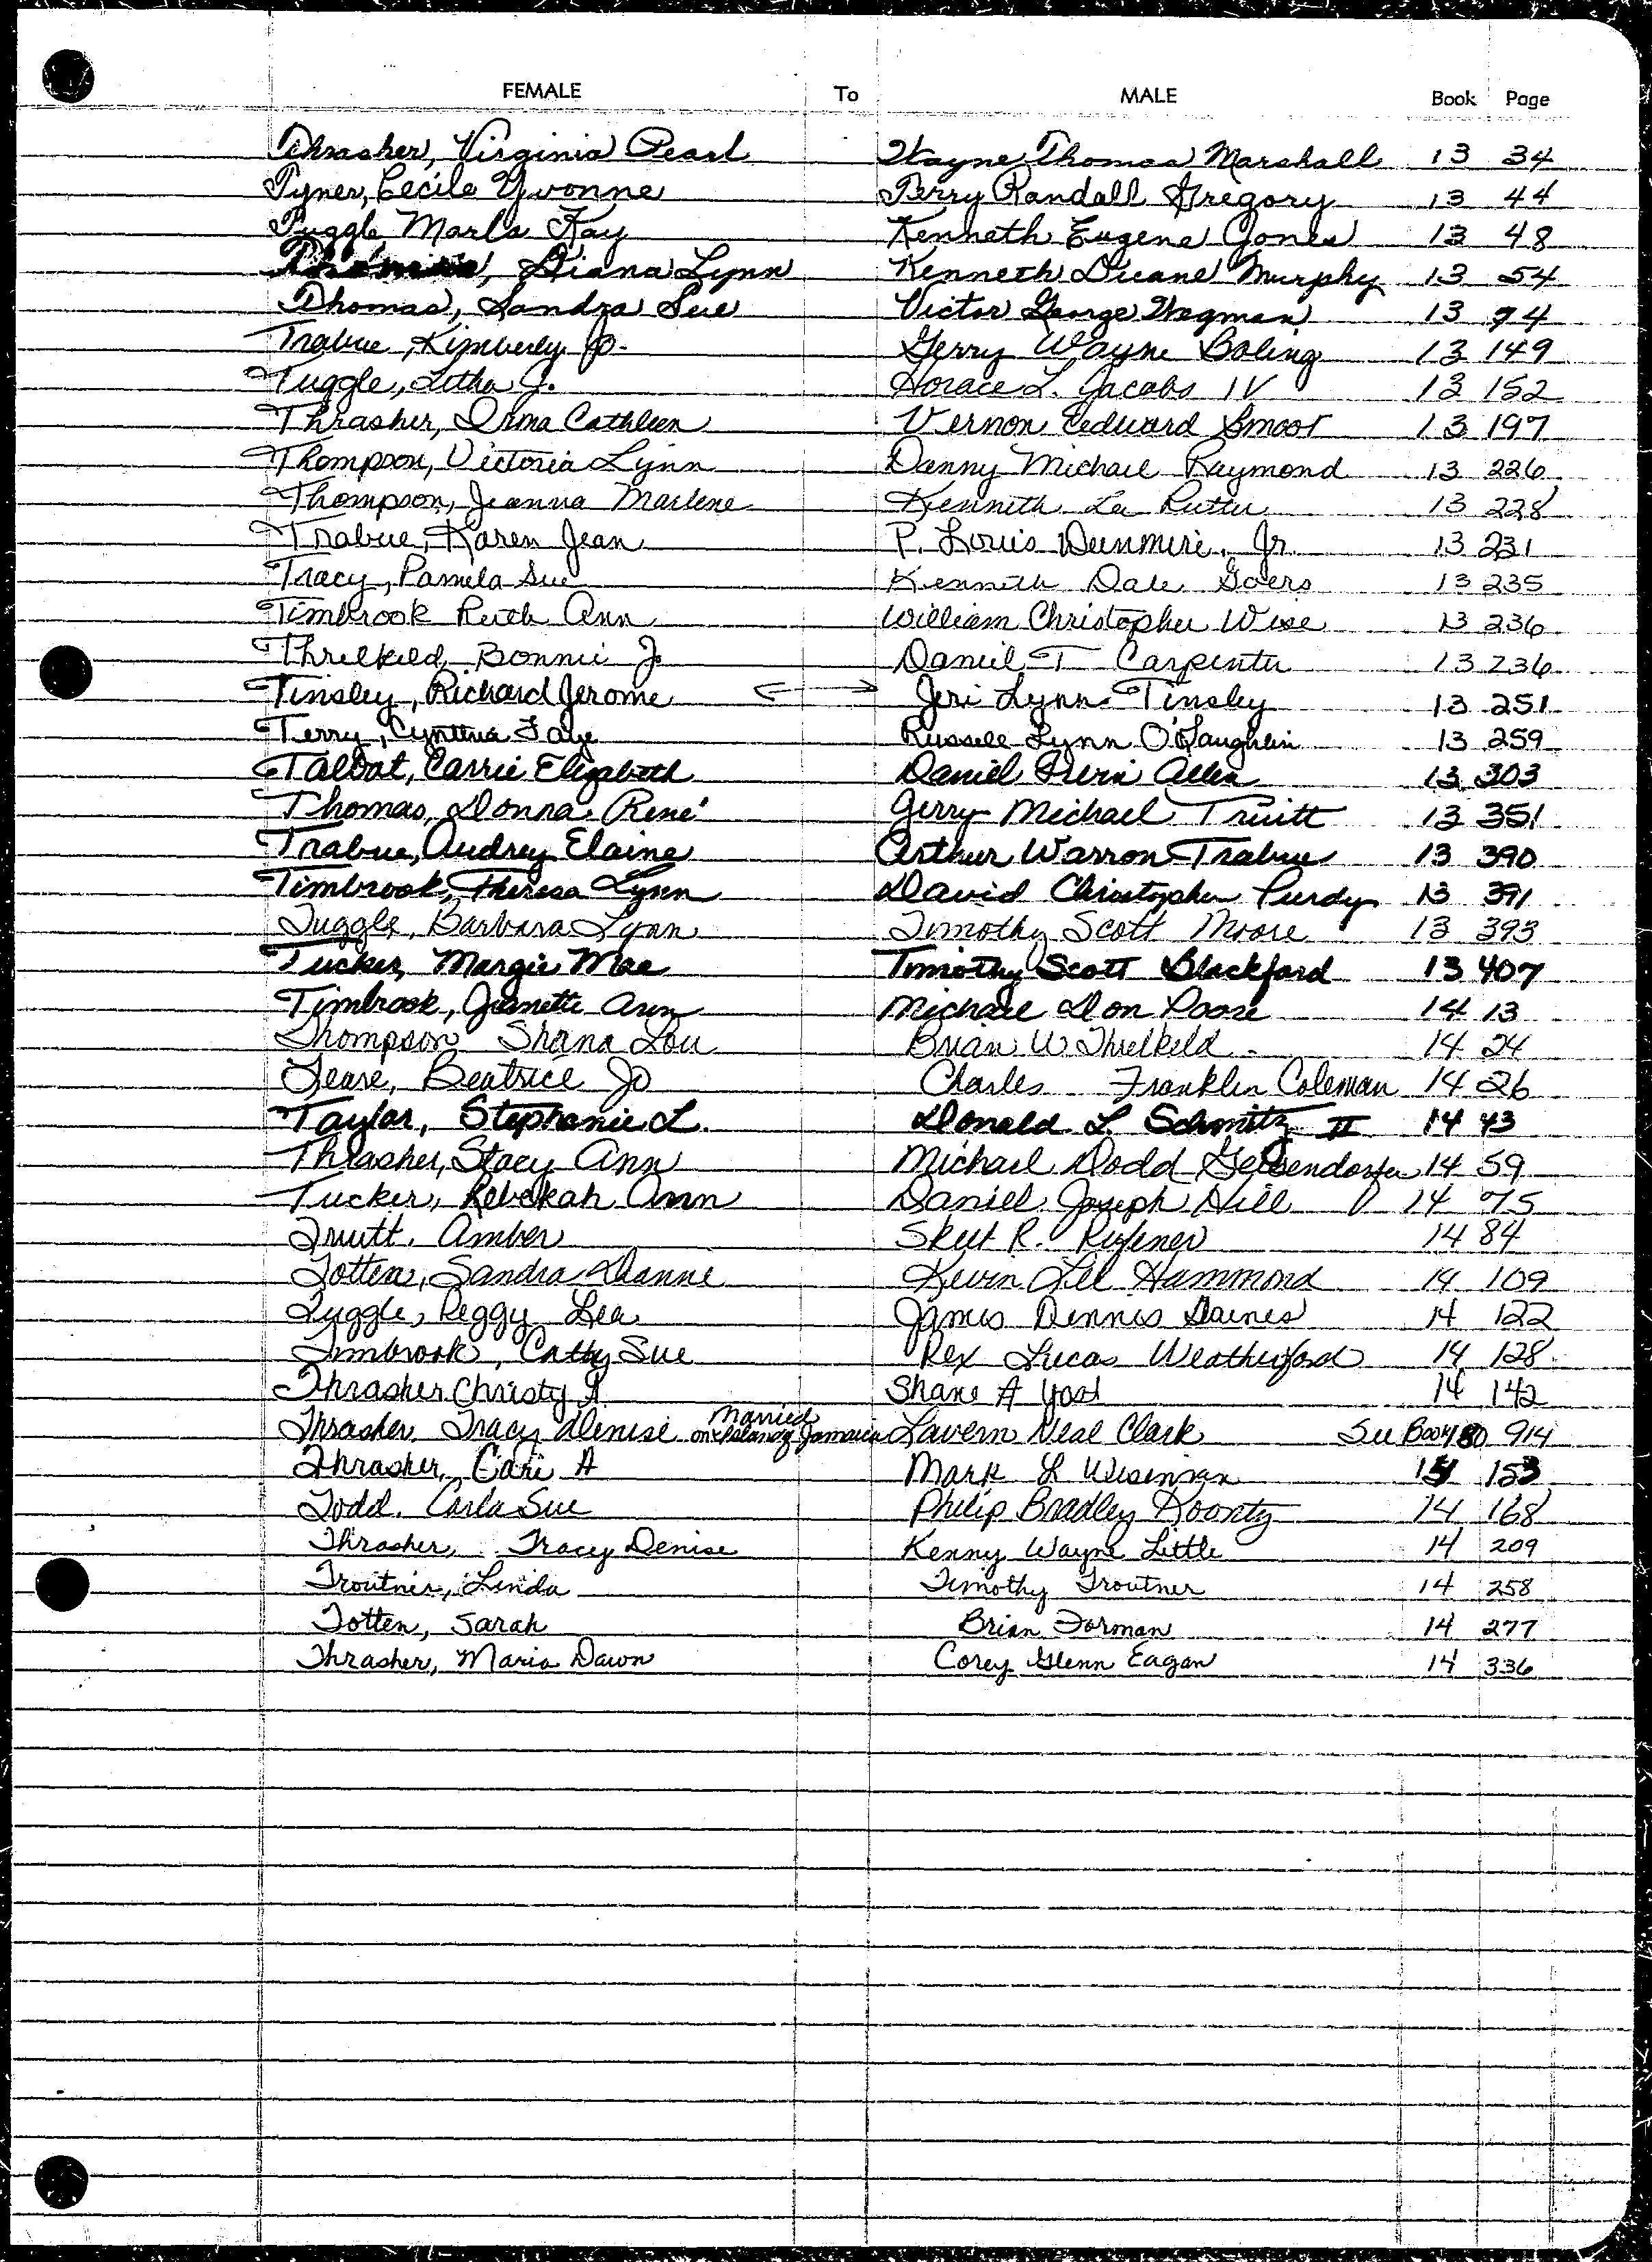 FEMALE To MALE Book Page
Thrasher, Virginia Pearl Wayne Thomas Marshall 13 34
Tyner, Cecile Yvonne Terry Randall Gregory 13 44
Tuggle Marla Kay Kenneth Eugene Jones 13 48
, Diana Lynn Kenneth Duane Murphy 13 54
Thomas, Sandra Sue Victor George Wegman 13 94
Trabue, Kimberly Jo. Gerry Wayne Boling 13 149
Tuggle, Letha J. Horace L. Jacobs IV 13 152
Thrasher, Irma Cathleen Vernon Edward Smoot 13 197
Thompson, Victoria Lynn Danny Michael Raymond 13 226
Thompson, Jeanna Marlene Kenneth La Rutu 13 228
Trabue, Karen Jean P. Louis Jr. 13 231
Tracy, Pamela Sue Kenneth Dale Goers 13 235
Timbrook Ruth Ann William Christopher Wise 13 236
Threlkeld, Bonnie J. Daniel T Carpenter 13 236
Tinsley, Richard Jerome ← → Jeri Lynn Tinsley 13 251
Terry, Cynthia Faye Russell Lynn O'Laughlin 13 259
Talbot, Carrie Elizabeth Daniel Irvin Allen 13 303
Thomas, Donna René Gerry Michael Truitt 13 351
Trabue, Audrey Elaine Arthur Warron Trabue 13 390
Timbrook, Theresa Lynn David Christopher Purdy 13 391
Tuggle, Barbara Lynn Timothy Scott Moore 13 393
Tucker, Margie Mae Timothy Scott Blackford 13 407
Timbrook, Jeanette Ann Michael Don Poore 14 13
Thompson Shana Lou Brian W Threlkeld 14 24
Teare, Beatrice Jo Charles Franklin Coleman 14 26
Taylor, Stephanie L. Donald L. Schmitz II 14 43
Thrasher, Stacy Ann Michael Dodd Geisendorfer 14 59
Tucker, Rebekah Ann Daniel Joseph Hill 14 75
Truitt, Amber Skeet R. 14 84
Totten, Sandra Dianne Kevin Lee Hammond 14 109
Tuggle, Peggy Lea James Dennis Gaines 14 122
Timbrook, Cathy Sue Rex Lucas Weatherford 14 128
Thrasher Christy A Shane A Yost 14 142
Thrasher, Tracy Denise Married on Island of Jamaica Lavern Neal Clark See Book 80 914
Thrasher, Cari A Mark L Wiseman 14 153
Todd, Carla Sue Philip Bradley Koontz 14 168
Thrasher, Tracy Denise Kenny Wayne Little 14 209
Troutner, Linda Timothy Troutner 14 258
Totten, Sarah Brian Forman 14 277
Thrasher, Maria Dawn Corey Glenn Eagan 14 336